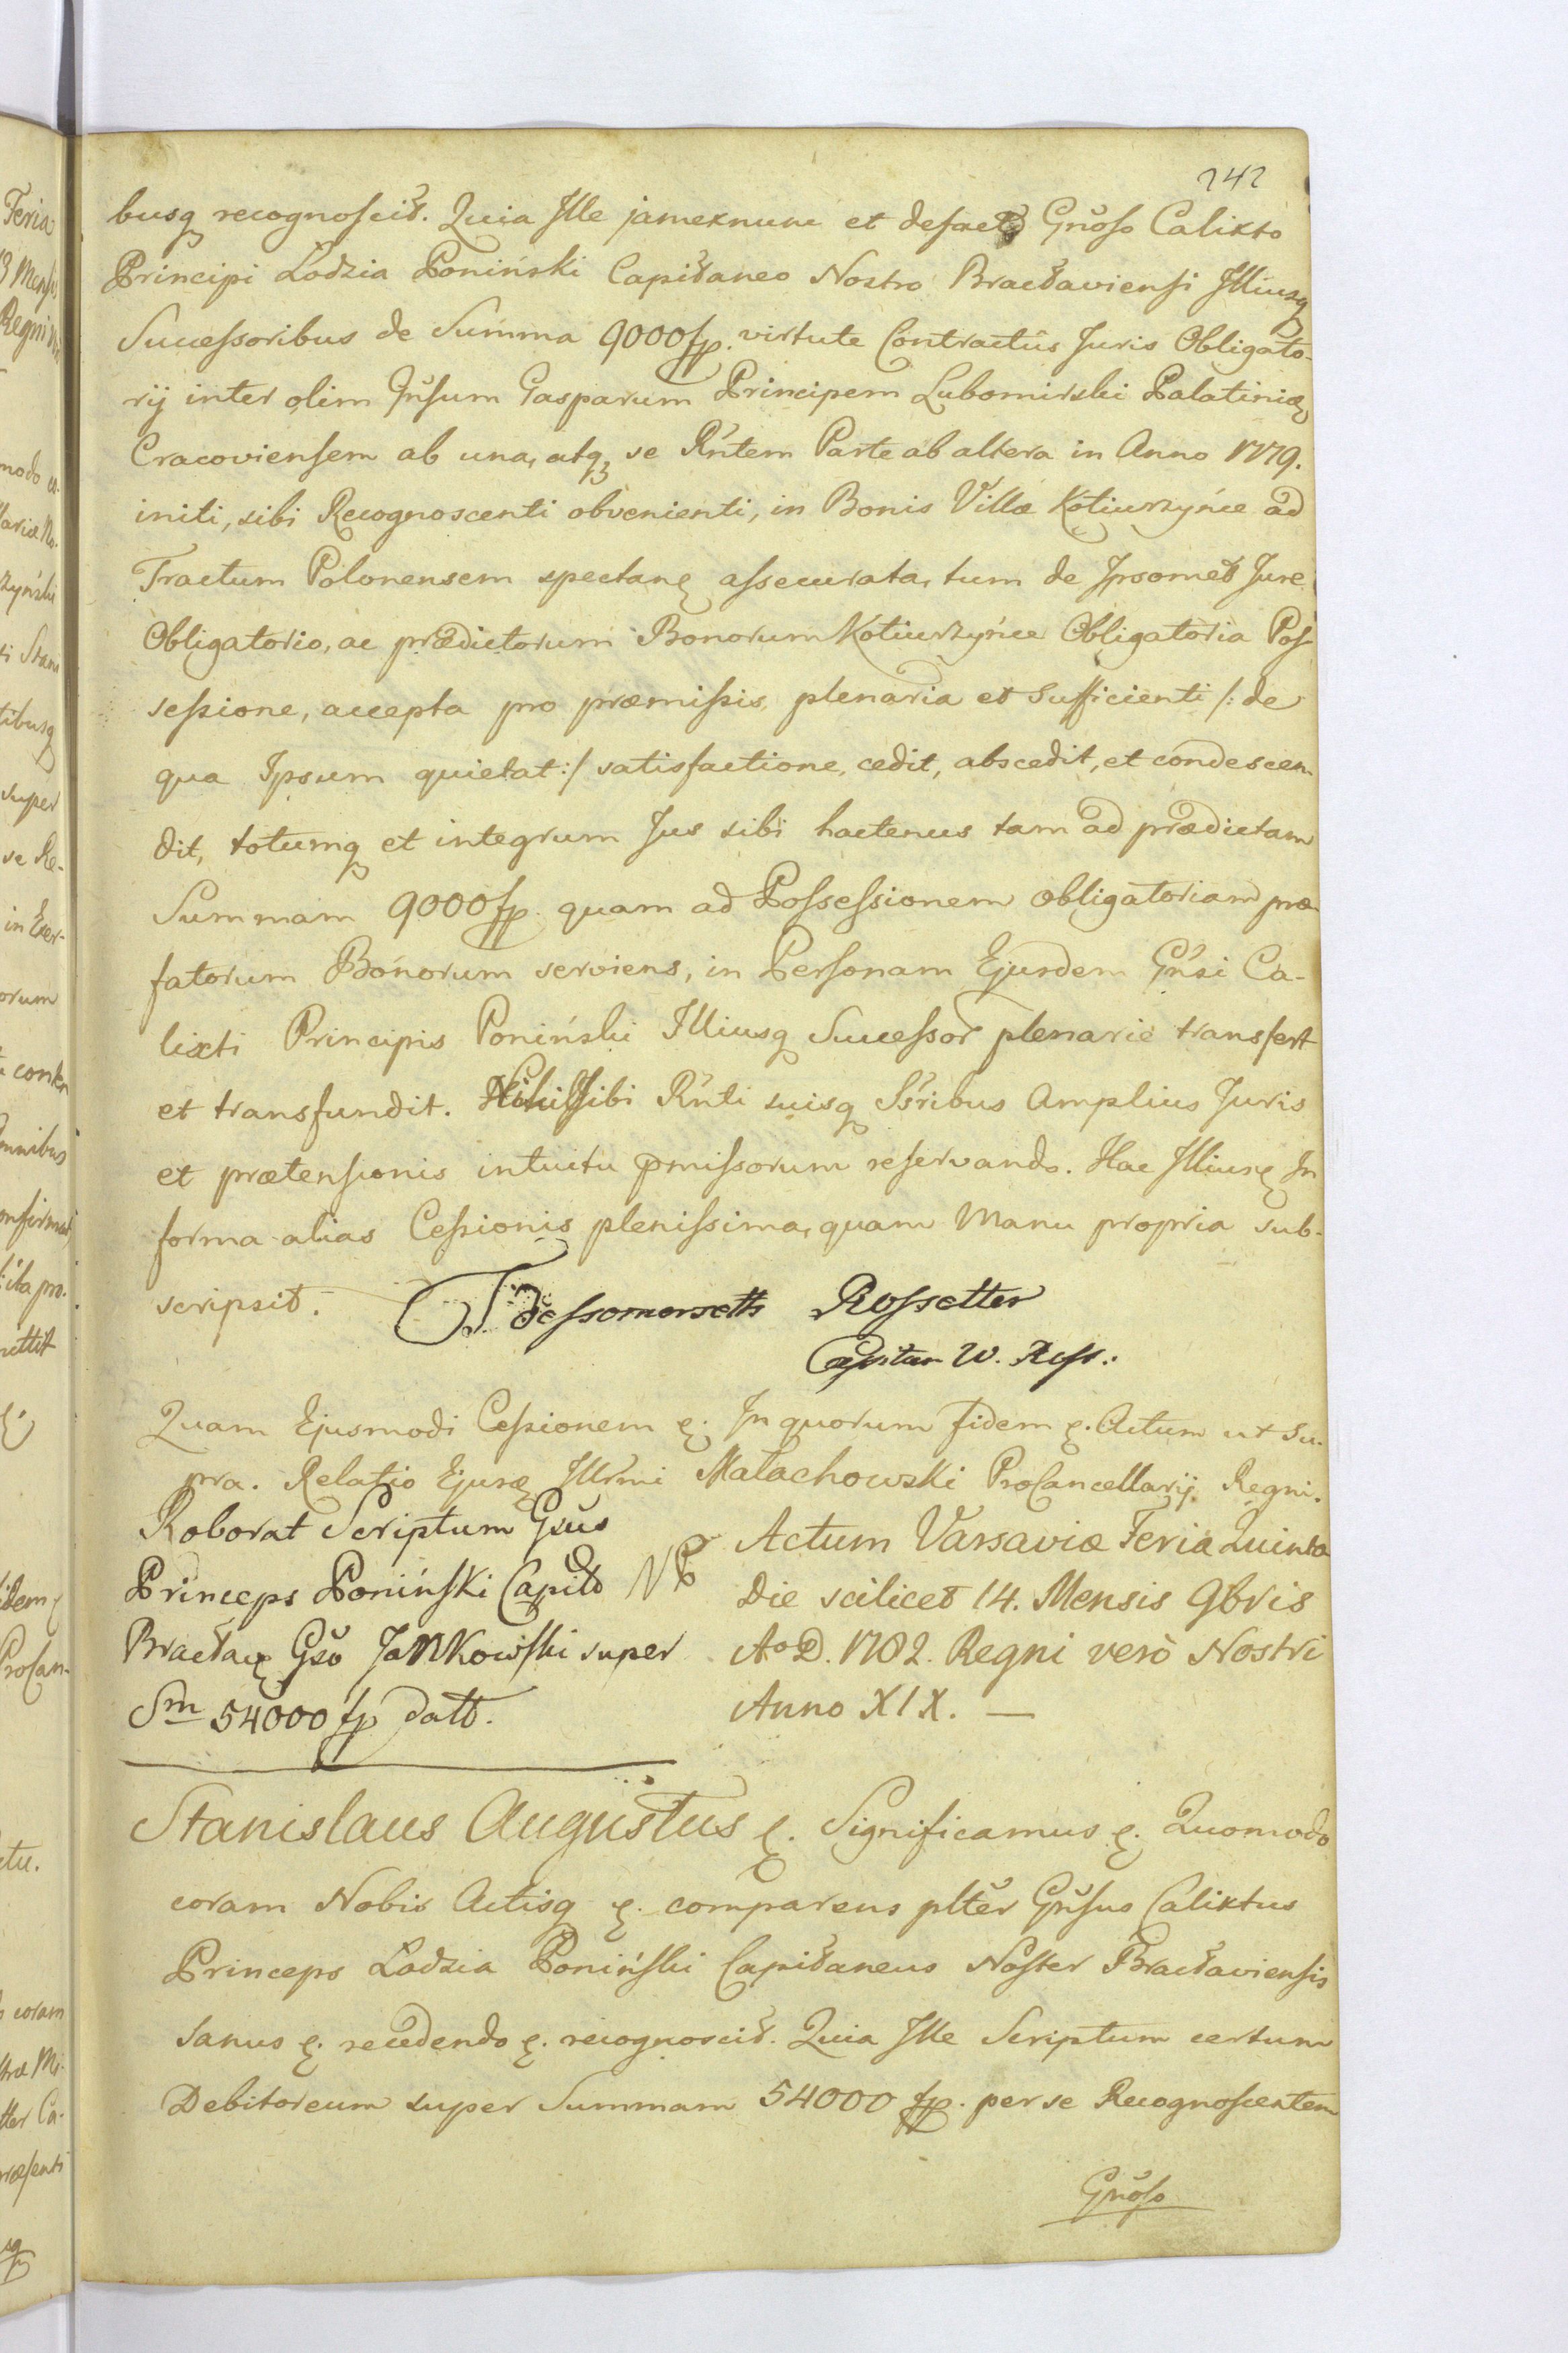 242
busq recognoscit. Quia Ille jamexnunc et defacto Gnoso Calixto
Principi Łodzia Poniński Capitaneo Nostro Bracłaviensi Illiusq
Successoribus de Summa 9000 fp. virtute Contractûs Juris Obligato-
rij inter olim Gnsum Gasparum Principem Lubomirski Palatinidę
Cracoviensem ab una, atq se Rntem Parte ab altera in Anno 1779.
initi, sibi Recognoscenti obvenienti, in Bonis Villæ Kotiurzyńce ad
Tractum Polonensem spectanę assecurata, tum de Ipsomet Jure
Obligatorio, ac prædictorum Bonorum Kotiurzyńce Obligatoria Pos-
sessione, accepta pro præmissis plenaria et Sufficienti /: de
qua Ipsum quietat :/ satisfactione, cedit, abscedit, et condescen-
dit, totumq et integrum Jus sibi hactenus tam ad prædictam
Summam 9000 fp. quam ad Possessionem obligatoriam præ-
fatorum Bonorum serviens, in Personam Ejusdem Gnsi Ca-
lixti Principis Poniński Illiusq Successor plenarie transfert
et transfundit. Nihil sibi Rnti suisq Ssribus Amplius Juris
et prætensionis intuitu pmissorum reservando. Hac Illiusę In
forma alias Cessionis plenissima, quam Manu propria sub-
scripsit. J dessomorsetts Rossetter
Capitan W. Ross.:
Quam Ejusmodi Cessionem ę. In quorum fidem ę. Actum ut Su-
pra. Relatio Ejusę Illrmi Małachowski ProCancellarij Regni.
Roborat Scriptum Gsus
Princeps Poniński Capito
Bracłavę Gso Jankowski super
Sm 54000 fp datt.
NB
Actum Varsaviæ Feria Quinta
Die scilicet 14. Mensis 9bris
Ao D. 1782. Regni verò Nostri
Anno XIX. —
Stanislaus Augustus ę. Significamus ę. Quomodo
coram Nobis Actisq ę. comparens plter Gnsus Calixtus
Princeps Łodzia Poniński Capitaneus Noster Bracłaviensis
Sanus ę. recedendo ę. recognoscit. Quia Ille Scriptum certum
Debitoreum super Summam 54000 fp. per se Recognoscentem
Gnoso